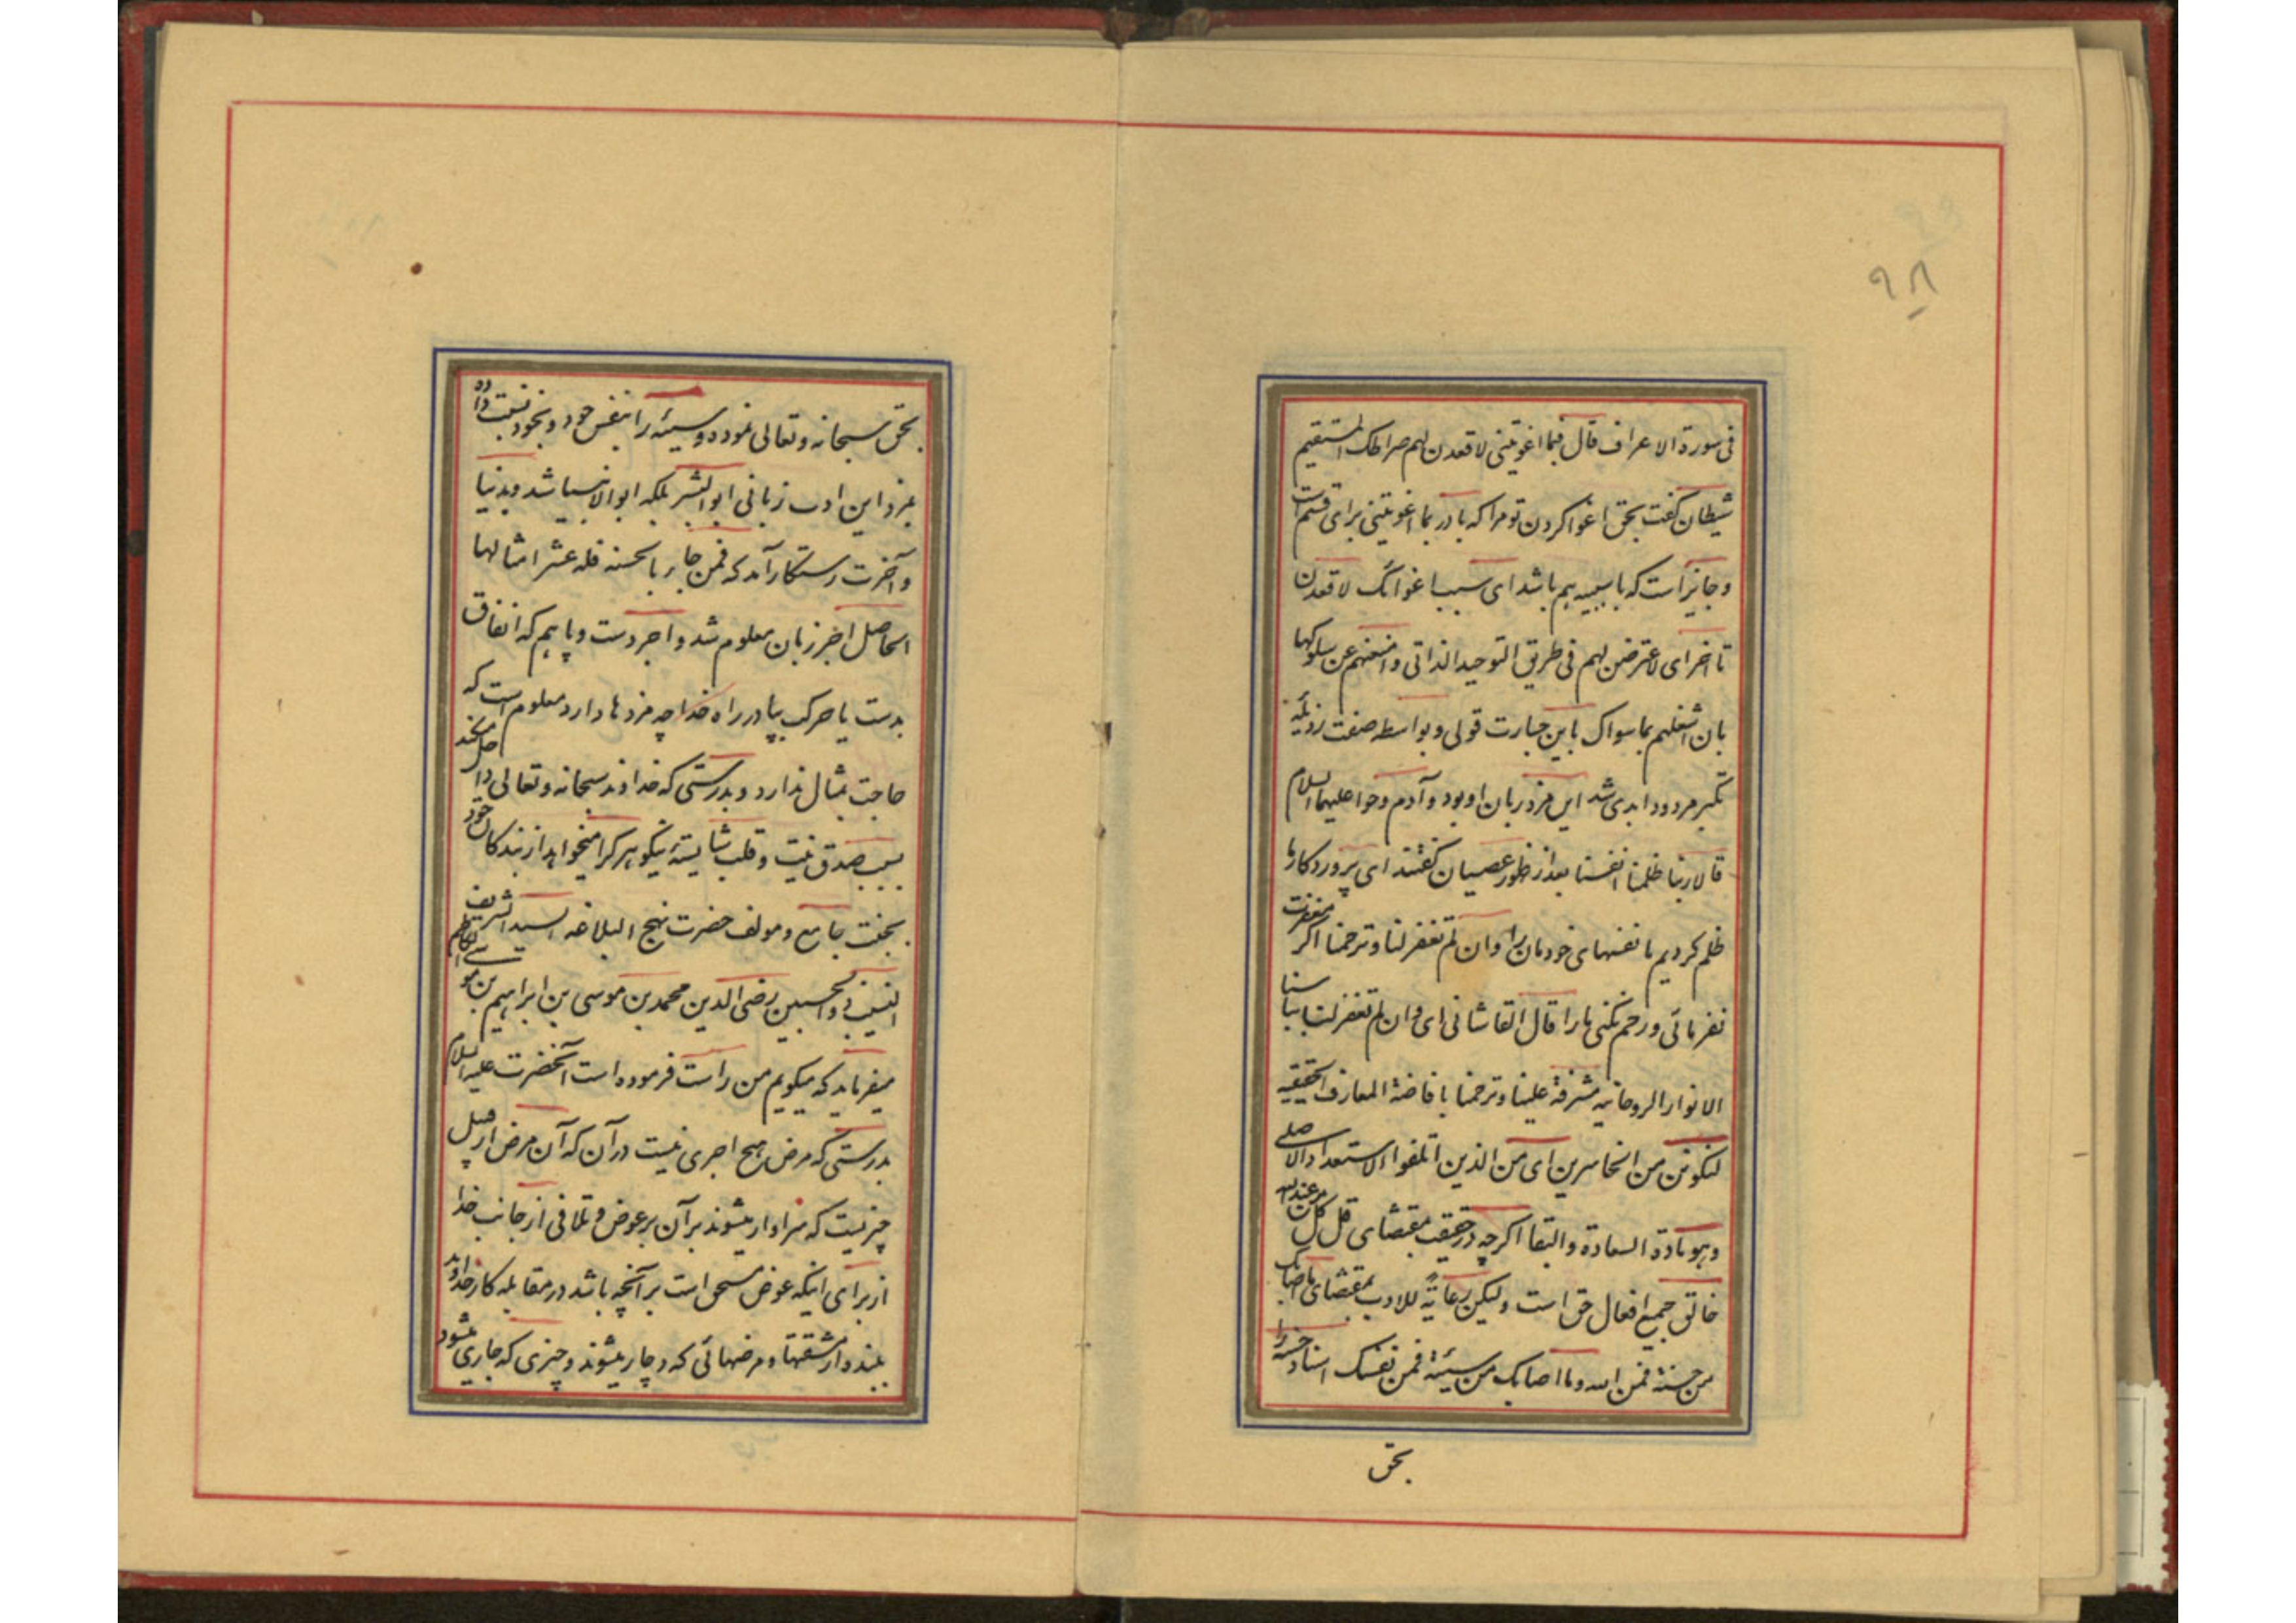 ۹۸
فی سورة الاعراف قال فبما اغویتنی لاقعدن لهم صراطک المستقیم
شیطان گفت بحق اغوا کردن تو مرا که با در بما اغویتنی برای قسم است
و جایز است که با سببیه هم باشد ای سبب اغوائک لاقعدن
تا اخر ای لاعترضن لهم فی طریق التوحید الذاتی و امنعنهم عن سلوکها
بان اشغلهم بما سواک باین جسارت قولی و بواسطه صفت رذیله
تکبر مردود ابدی شد این مزد زبان او بود و آدم و حوا علیهما السلام
قالا ربنا ظلمنا انفسنا بعد از ظهور عصیان گفتند ای پروردگار ما
ظلم کردیم ما نفسهای خودمان را و ان لم تغفر لنا و ترحمنا اگر مغفرت
نفرمائی و رحم نکنی ما را قال القاشانی ای و ان لم تغفر لنا
الانوار الروحانیه مشرقة علینا و ترحمنا بافاضة المعارف الحقیقیه
لنکونن من الخاسرین ای من الذین اتلفوا الاستعداد الاصلی
و هو مادة السعادة و البقا اگرچه در حقیقت بمقتضای قل کل من عند الله
خالق جمیع افعال حق است ولیکن رعایةً للادب بمقتضای ما اصابک
من حسنة فمن الله و ما اصابک من سیئة فمن نفسک اسناد حسنه را
بحق
بحق سبحانه و تعالی نموده و سیئه را بنفس خود و بخود نسبت داده
بمزد این ادب زبانی ابوالبشر بلکه ابوالانبیا شد و بدنیا
و آخرت رستکار آمد که فمن جاء بالحسنه فله عشر امثالها
الحاصل اجر زبان معلوم شد و اجر دست و پا هم که انفاق
بدست یا حرکت بپا در راه خدا چه مزدها دارد معلوم است که
حاجت بمثال ندارد و بدرستی که خداوند سبحانه و تعالی داخل میکند
بسبب صدق نیت و قلب شایسته نیکو هر که را میخواهد از بندکان خود
بجنت جامع و مولف حضرت نهج البلاغه السید الشریف
النسیب ذو الحسبین رضی الدین محمد بن موسی بن ابراهیم بن موسی الکاظم
میفرماید که میکویم من راست فرموده است آنحضرت علیه السلام
بدرستی که مرض هیچ اجری نیست در آن که آن مرض از قبیل
چیزیست که سزاوار میشوند بر آن بر عوض و تلافی از جانب خدا
از برای اینکه عوض مستحق است بر آنچه باشد در مقابله کار خداوند
ببنده از مشقتها و مرضهائی که دچار میشوند و چیزی که جاری میشود